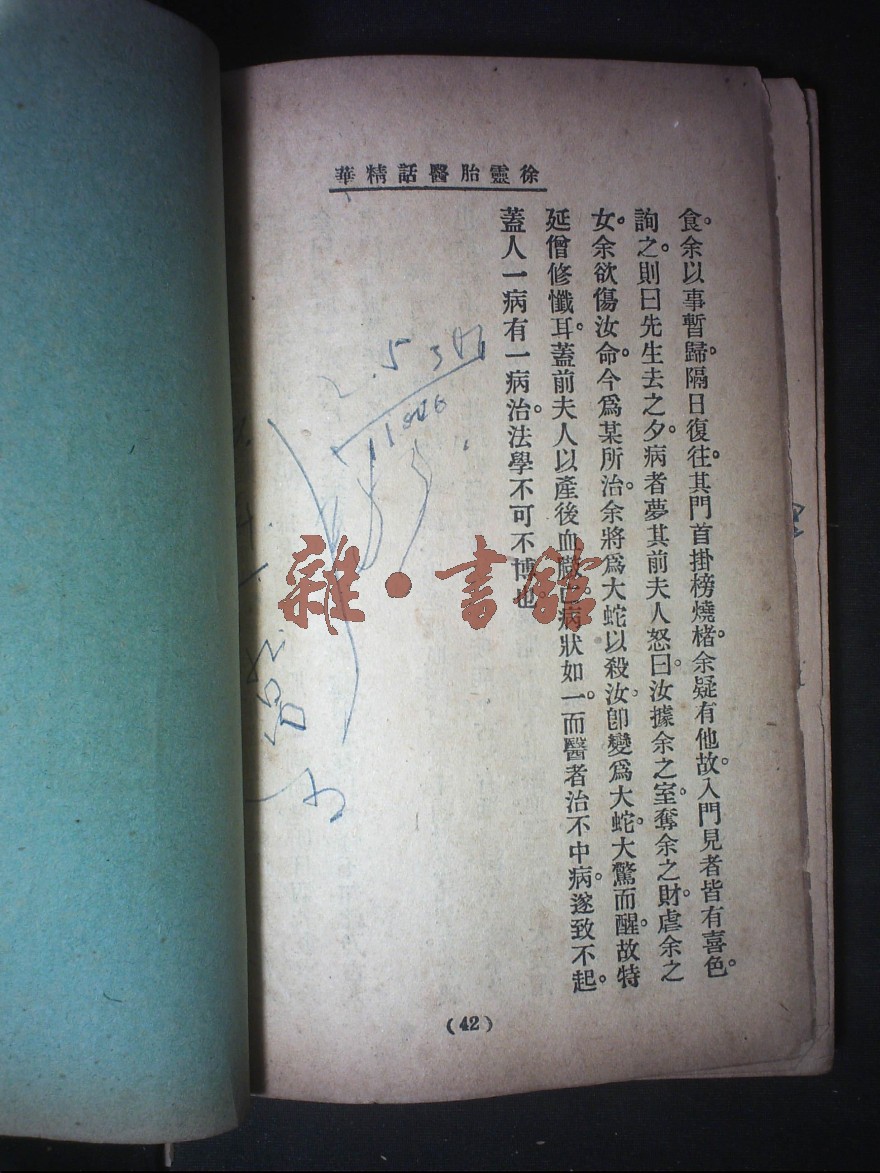 徐靈胎醫話精華
食。余以事暫歸。隔日復往。其門首掛榜燒楮。余疑有他故。入門見者皆有喜色。
詢之。則曰先生去之夕。病者夢其前夫人怒曰。汝據余之室。奪余之財。虐余之
女。余欲傷汝命。今爲某所治。余將爲大蛇以殺汝。卽變爲大蛇。大驚而醒。故特
延僧修懺耳。蓋前夫人以產後血臌亡。病狀如一。而醫者治不中病。遂致不起。
蓋人一病有一病治。法學不可不博也
雜·書館
(42)